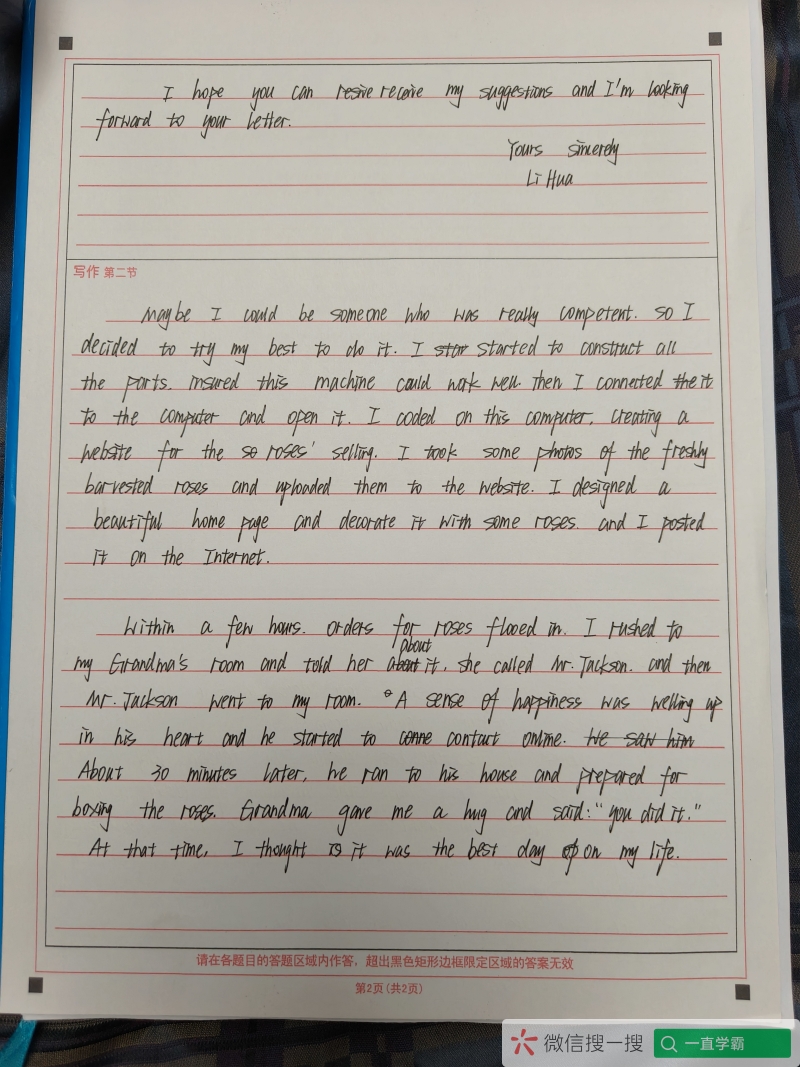 I hope you can resive receive my suggestions and I'm looking
forward to your letter.
Yours sincerely
Li Hua
写作 第二节
Maybe I could be someone who was really competent. so I
decided to try my best to do it. I star started to construct all
the parts. insured this machine could work well. Then I connected the it
to the computer and open it. I coded on this computer, creating a
website for the so roses' selling. I took some photos of the freshly
barvested roses and uploaded them to the website. I designed a
beautiful home page and decorate it with some roses. and I posted
it on the Internet.
Within a few hours. orders for roses flooed in. I rushed to
about
my Grandma's room and told her about it, she called Mr. Jackson. and then
Mr. Jackson went to my room. A sense of happiness was welling up
in his heart and he started to conne contact online. He saw him
About 30 minutes later, he ran to his house and prepared for
boxing the roses. Grandma gave me a hug and said: "you did it."
At that time, I thought is it was the best day of on my life.
请在各题目的答题区域内作答，超出黑色矩形边框限定区域的答案无效
第2页(共2页)
微信搜一搜
一直学霸